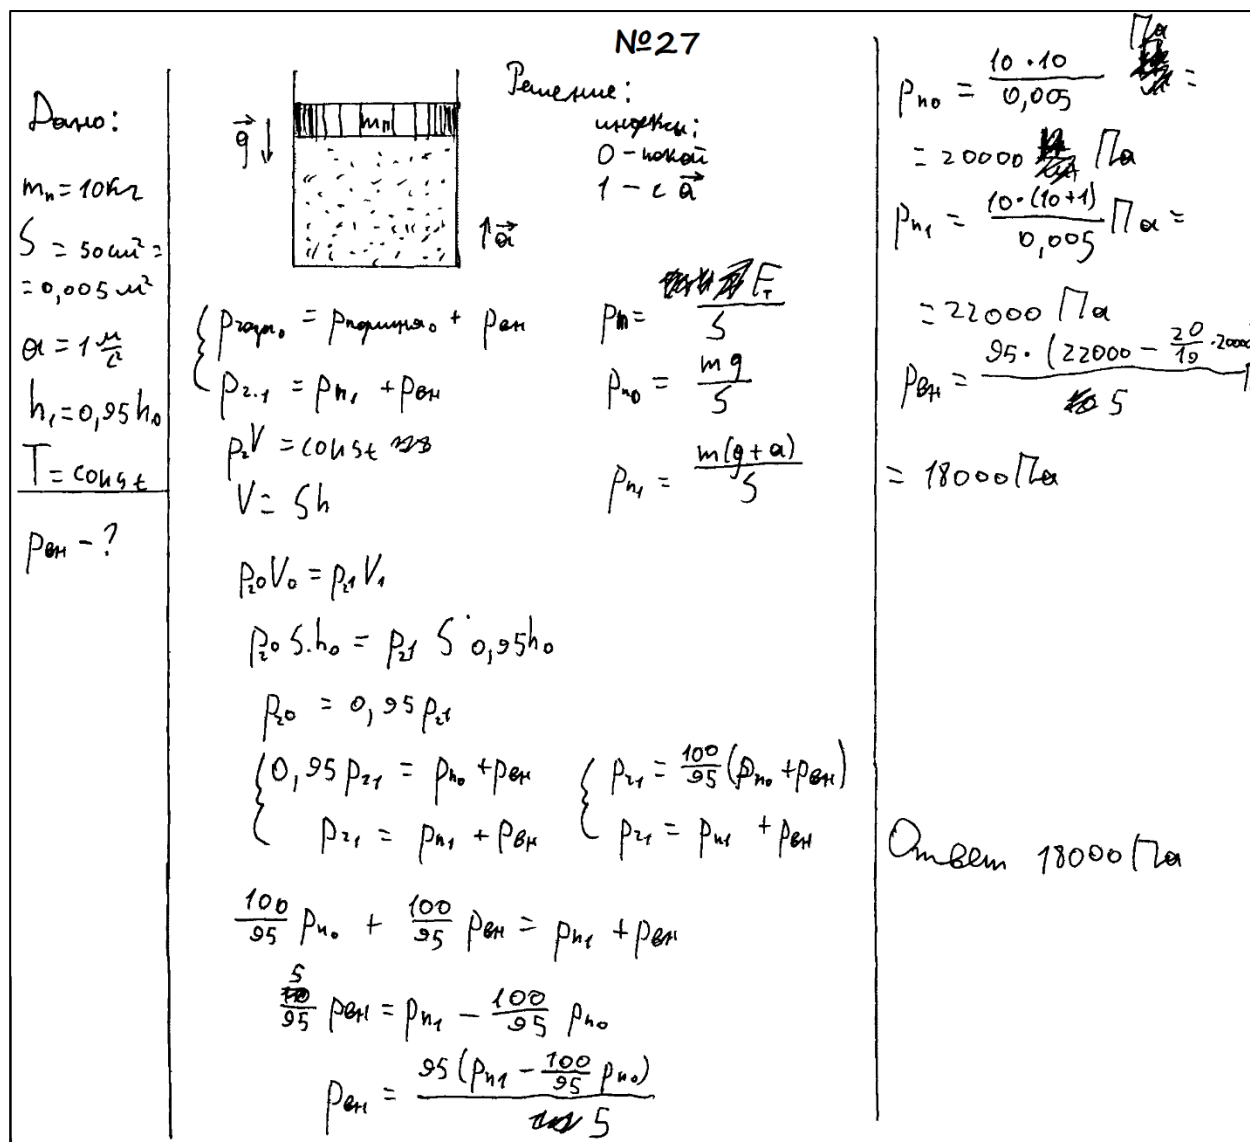 №27
Дано:
mₙ = 10 кг
S = 50 см² =
= 0,005 м²
a = 1 м/с²
h₁ = 0,95 h₀
T = const
pвн - ?
g⃗
mп
a⃗
Решение:
индексы:
0 - покой
1 - с a⃗
pгаза₀ = pпоршня₀ + pвн
pг.1 = pп₁ + pвн
pгV = const
V = Sh
pп = Fт/S
pп₀ = mg/S
pп₁ = m(g + a)/S
pг0 V₀ = pг1 V₁
pг0 S · h₀ = pг1 S · 0,95h₀
pг0 = 0,95 pг1
0,95 pг1 = pп₀ + pвн
pг1 = pп₁ + pвн
pг1 = 100/95 (pп₀ + pвн)
pг1 = pп1 + pвн
100/95 pп₀ + 100/95 pвн = pп1 + pвн
5/95 pвн = pп1 - 100/95 pп₀
pвн = 95 (pп1 - 100/95 pп₀) / 5
pп₀ = 10 · 10 / 0,005 Па =
= 20000 Па
pп₁ = 10 · (10+1) / 0,005 Па =
= 22000 Па
pвн = 95 · (22000 - 20/19 · 20000) / 5
= 18000 Па
Ответ 18000 Па